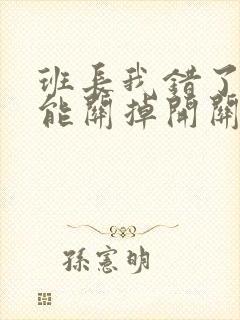 班長我錯了
能關掉開關
孫憲明